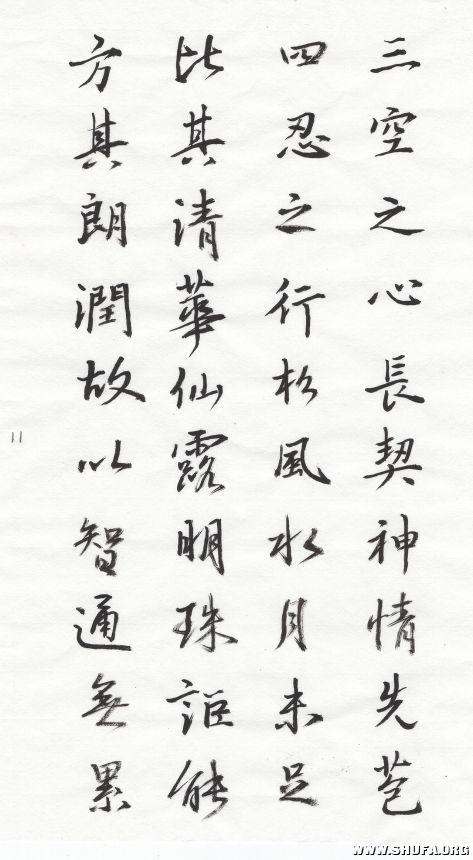 三空之心長契神情先苞
四忍之行松風水月未足
比其清華仙露明珠詎能
方其朗潤故以智通無累
11
WWW.SHUFA.ORG